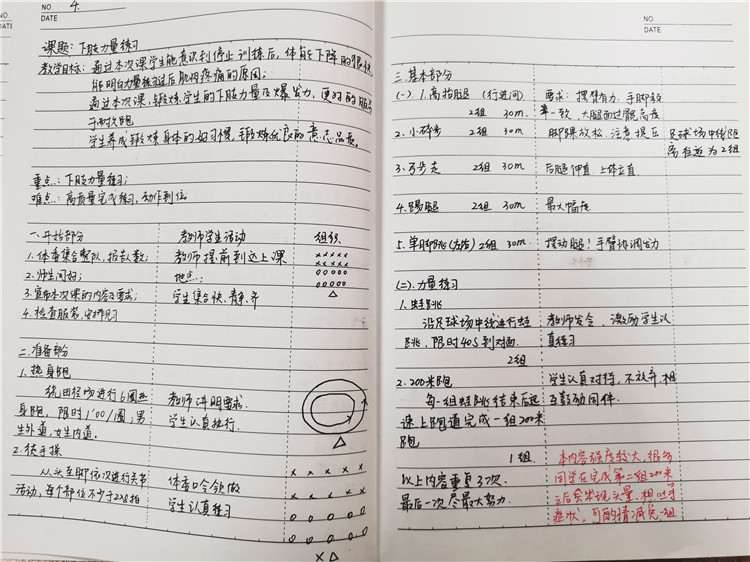 NO. 4.
DATE
课题：下肢力量练习
教学目标：通过本次课学生能意识到停止训练后，体能下降的很快
能明白力量练习过后肌肉疼痛的原因；
通过本次课，锻炼学生的下肢力量及爆发力，更好的服务
于耐久跑
学生养成锻炼身体的好习惯，锻炼优良的意志品质。
重点：下肢力量练习；
难点：高质量完成练习，动作到位
一.开始部分 教师学生活动 组织
1.体委集合整队，报告人数； 教师提前到达上课
2.师生问好； 地点：
3.宣布本次课的内容及要求； 学生集合快、静、齐
4.检查服装，安排见习
二.准备部分
1.热身跑
绕田径场进行6圈热 教师讲明要求.
身跑，限时1'00/圈，男 学生认真执行.
生外道，女生内道.
2.徒手操
从头至脚依次进行关节 体委口令领做
活动，每个部位不少于2x8拍 学生认真练习
NO
DATE
三.基本部分
(一).1.高抬腿 (行进间) 要求：摆臂有力，手脚频
2组 30m. 率一致，大腿面过髋高度
2.小碎步 2组 30m 脚踝放松，注意提压 足球场中线距
3.弓步走 2组 30m 后腿伸直，上体立直 离往返为2组
4.踢腿 2组 30m 最大幅度
5.单脚跳(左右) 2组 30m. 摆动腿！手臂协调发力
(二).力量练习
1.蛙跳
沿足球场中线进行蛙 教师发令，激励学生认
跳，限时40S到对面. 真练习
2组
2.200米跑 学生认真对待，不放弃，相
每一组蛙跳结束后迅 互鼓励同伴.
速上跑道完成一组200米
跑
1组. 本内容难度较大，很多
以上内容重复3次. 同学在完成第二组200米
最后一次尽最大努力. 之后会出现头晕.想吐等
症状，可酌情减免一组